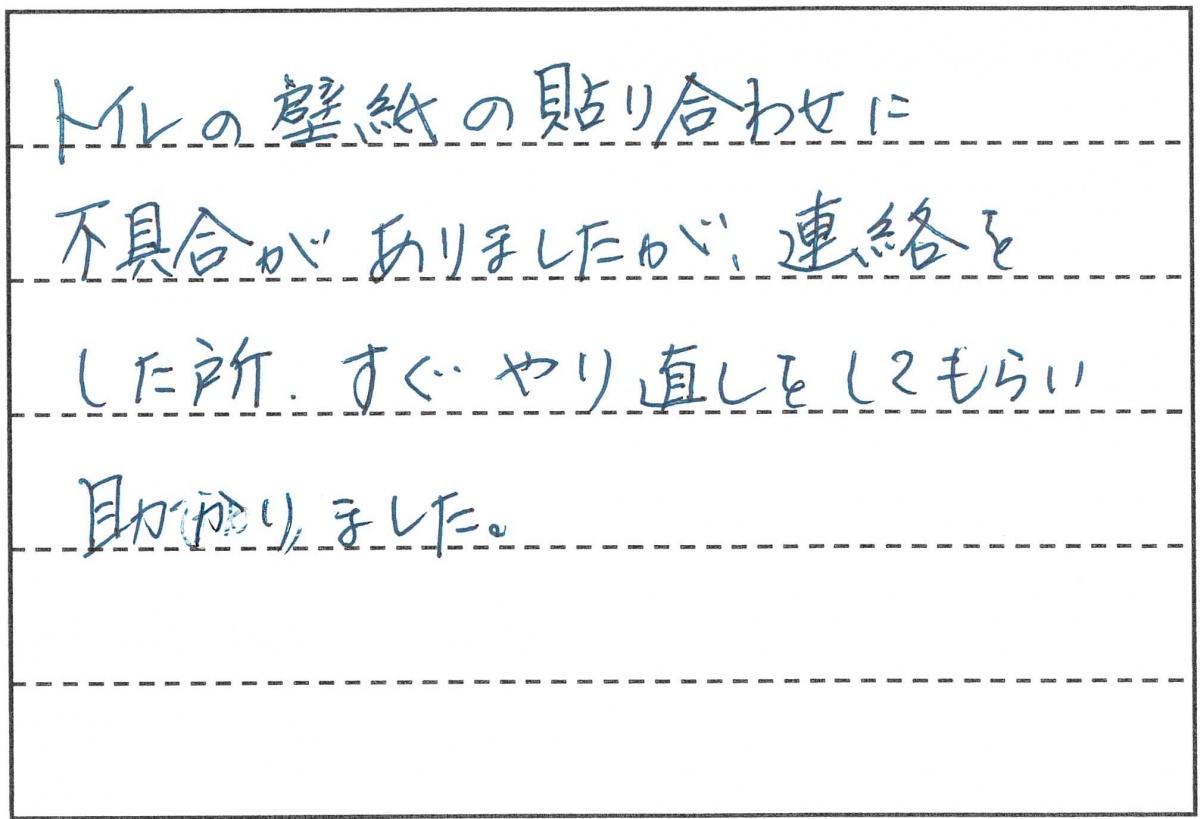 トイレの壁紙の貼り合わせに
不具合がありましたが、連絡を
した所、すぐやり直しをしてもらい
助かりました。